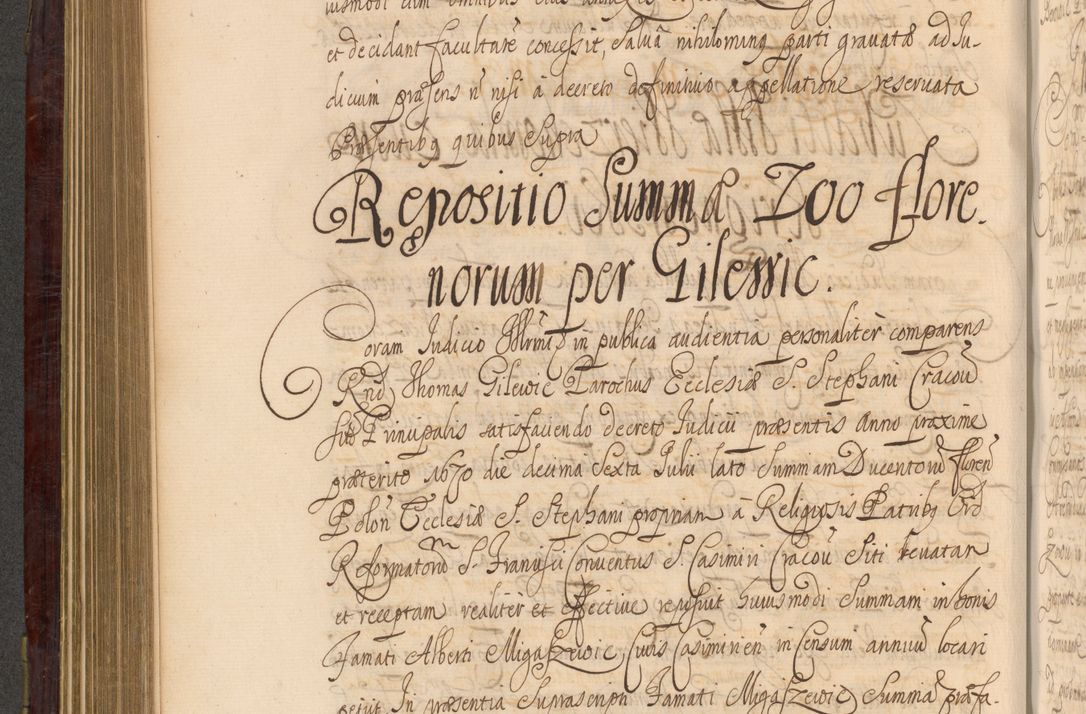 et decidant facultatē concessit, salvâ nihilominq parti gravatæ ad Ju-
dicium præsens ñ nisi à decreto definitivo appellatione reservata
Præsentibq quibus supra
Repositio Summæ 200 flore-
norum per Gilewic.
Coram Judicio Illrmi in publica audientia personaliter comparens
Rnd Thomas Gilewic Parochus Ecclesiæ S. Stephani Cracoū
sito Principalis satisfaciendo decreto Judicii præsentis Anno proxime
præterito 1670 die decima sexta Julii lato Summam Ducentorū floren
Polon Ecclesiæ S. Stephani propriam à Religiosis Patribq Ord
Reformatorū S. Francisci Conventus S. Casimiri Cracoū Siti levatam
et receptam realitèr et effective reposuit huiusmodi Summam in bonis
Famati Alberti Migaszewic, Civis Casimirieñ in Censum annuū locari
petiit In præsentia Suprascripti Famati Migaszewic Summā præfa-